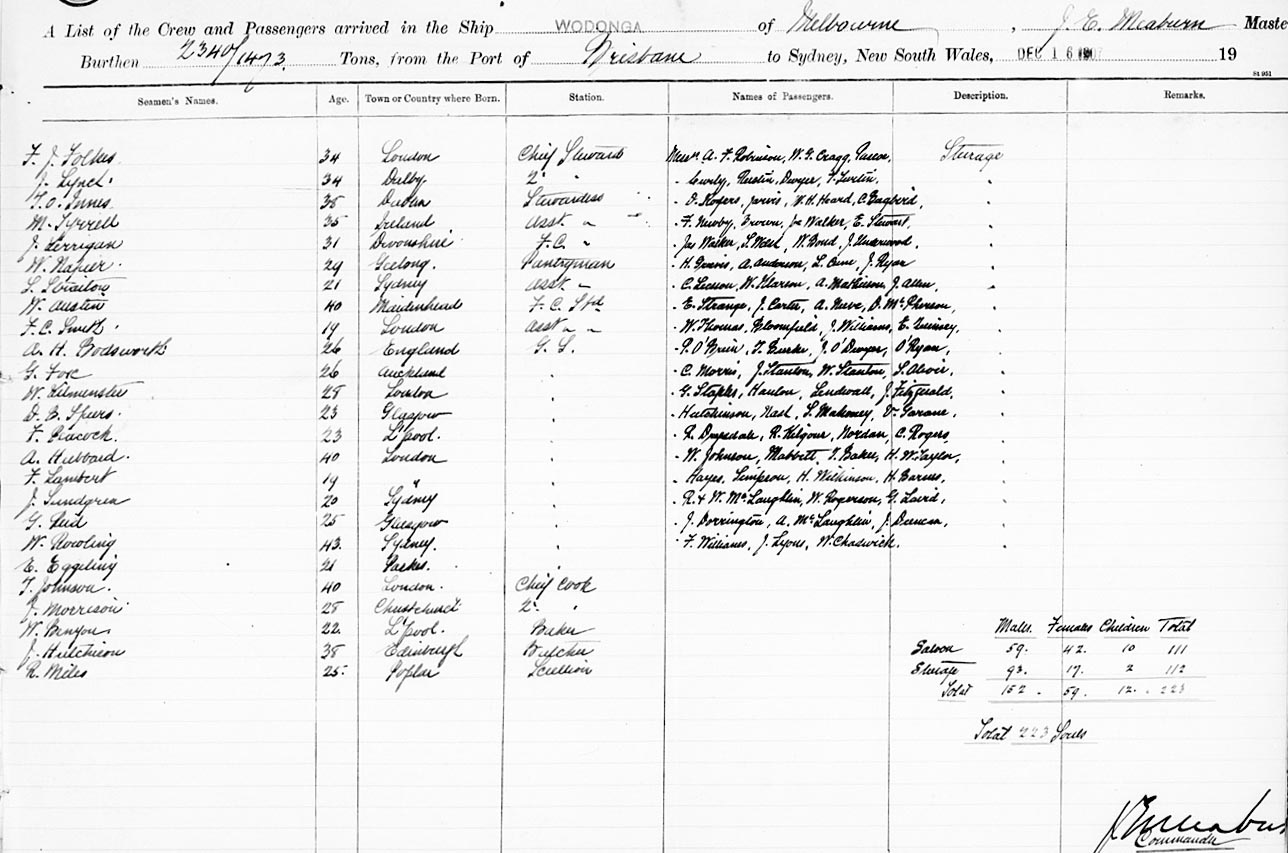 A List of the Crew and Passengers arrived in the Ship WODONGA of Melbourne, J. E. Meaburn Maste
Burthen 2340/1473 Tons, from the Port of Brisbane to Sydney, New South Wales, DEC 16 1907 19
St 951
Seamen's Names. Age. Town or Country where Born. Station. Names of Passengers. Description. Remarks.
F. J. Folkes 34 London Chief Steward Messrs A. F. Robinson, W. G. Cragg, Pascoe, Steerage
J. Lynch 34 Dalby 2nd " Dwyer,
T. O. Innes 38 Dublin Stewardess D. Rogers, Jarvis, W. H. Heard, C.
M. Tyrrell 35 Ireland Asst. " F. Newby, Brown, Jas Walker, E. Stewart,
J. Kerrigan 31 Devonshire F. C. " Jas Walker, S. West, W. Bond, J. Underwood,
W. Napier 29 Geelong. Pantryman H. A. Anderson, L. J. Ryan
S. Straiton 21 Sydney Asst. " C. Leeson, W. A. Mathieson, J. Allen,
W. Austin 40 Maidenhead F. C. Std E. Strange, J. Carter, A. Neve, D. McPherson,
F. C. Smith 19 London Asst " " W. Thomas, Bloomfield, J. Williams, E. Quinsey,
A. H. Bodsworth 26 England G. S. P. O'Brien, T. Burke, J. O'Dwyer, O'Ryan,
G. Fox 26 Auckland " C. Morris, J. Stanton, W. Stanton, S.
W. Kilmenster 28 London " G. Staples, Hanlon, Lindwall, J. Fitzgerald,
D. B. Spiers 23 Glasgow " Hutchinson, Nash, S. Mahoney, V.
F. Peacock. 23 L'pool. " R. Drysdale, R. Kilgour, Nordan, C. Rogers,
A. Hubbard. 40 London " W. Johnson, Mabbett, T. Baker, H. W. Taylor,
F. Lambert 19 " " Hayes, Simpson, H. Wilkinson, H. Barnes,
J. Lundgren 20 Sydney " R. & W. McLaughlin, W. Rogerson, G. Laird,
G. Reid 25 Glasgow " J. Dorrington, A. McLaughlin, J. Duncan,
W. Rowling 43. Sydney. " F. Williams, J. Lyons, W. Chadwick.
E. Eggeling 21 Parkes. "
T. Johnson. 40 London. Chief Cook
J. Morrison 28 Christchurch 2nd "
W. Benyon 22 L'pool. Baker
J. Hutchison 38 Edinburgh Butcher
R. Miles 25. Poplar Scullion
Males. Females Children Total
Saloon 59. 42. 10 111
Steerage 93. 17. 2 112
Total 152. 59. 12. 223
Total 223 Souls
J E Meabur
Commander